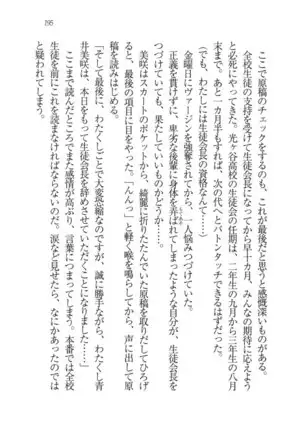 195
ここで原稿のチェックをするのも、これが最後だと思うと感慨深いものがある。
全校生徒の支持を受けて生徒会長になってから早十カ月、みんなの期待に応えよう
と必死にやってきた。光ヶ谷高校の生徒会の任期は、二年生の九月から三年生の八月
末まで。あと一カ月半もすれば、次の代へとバトンタッチできるはずだった。
（でも、わたしには生徒会長の資格なんて……）
金曜日にヴァージンを強奪されてから、一人悩みつづけていた。
正義を貫けずに、卑劣な後輩に身体を弄ばれてしまった自分が、生徒会長を
つづけていても、果たしていいものかどうか……。
美咲はスカートのポケットから、綺麗に折りたたんでいた原稿を取りだしてひろげ
ると、最後の項目に目をやった。「んんっ」と軽く喉を鳴らしてから、声に出して原
稿を読みはじめる。
「そして最後に、わたくしごとで大変恐縮なのですが、誠に勝手ながら、わたくし青
井美咲は、本日をもって生徒会長を辞めさせていただくことになりました……」
ここまで読んだところでまた感情が高ぶり、言葉につまってしまう。本番では全校
生徒を前にこれを読まなければならないのだ。涙など見せたら、なにかあったのでは
と疑われてしまう。